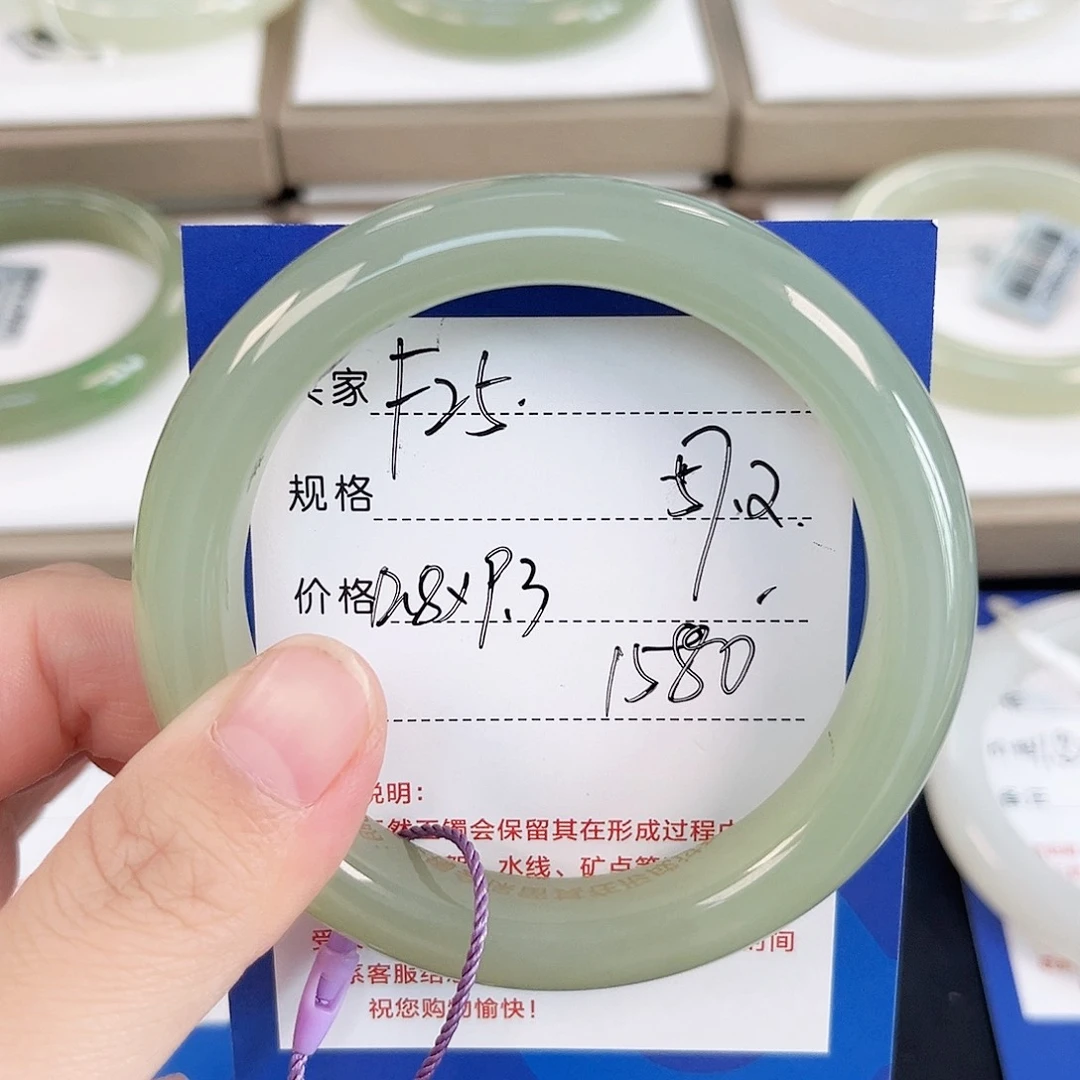 家 F25.
规格 57.2.
价格 12.8×9.3
1580
说明：
天然玉镯会保留其在形成过程中
水线、矿点等
系客服给
祝您购物愉快！